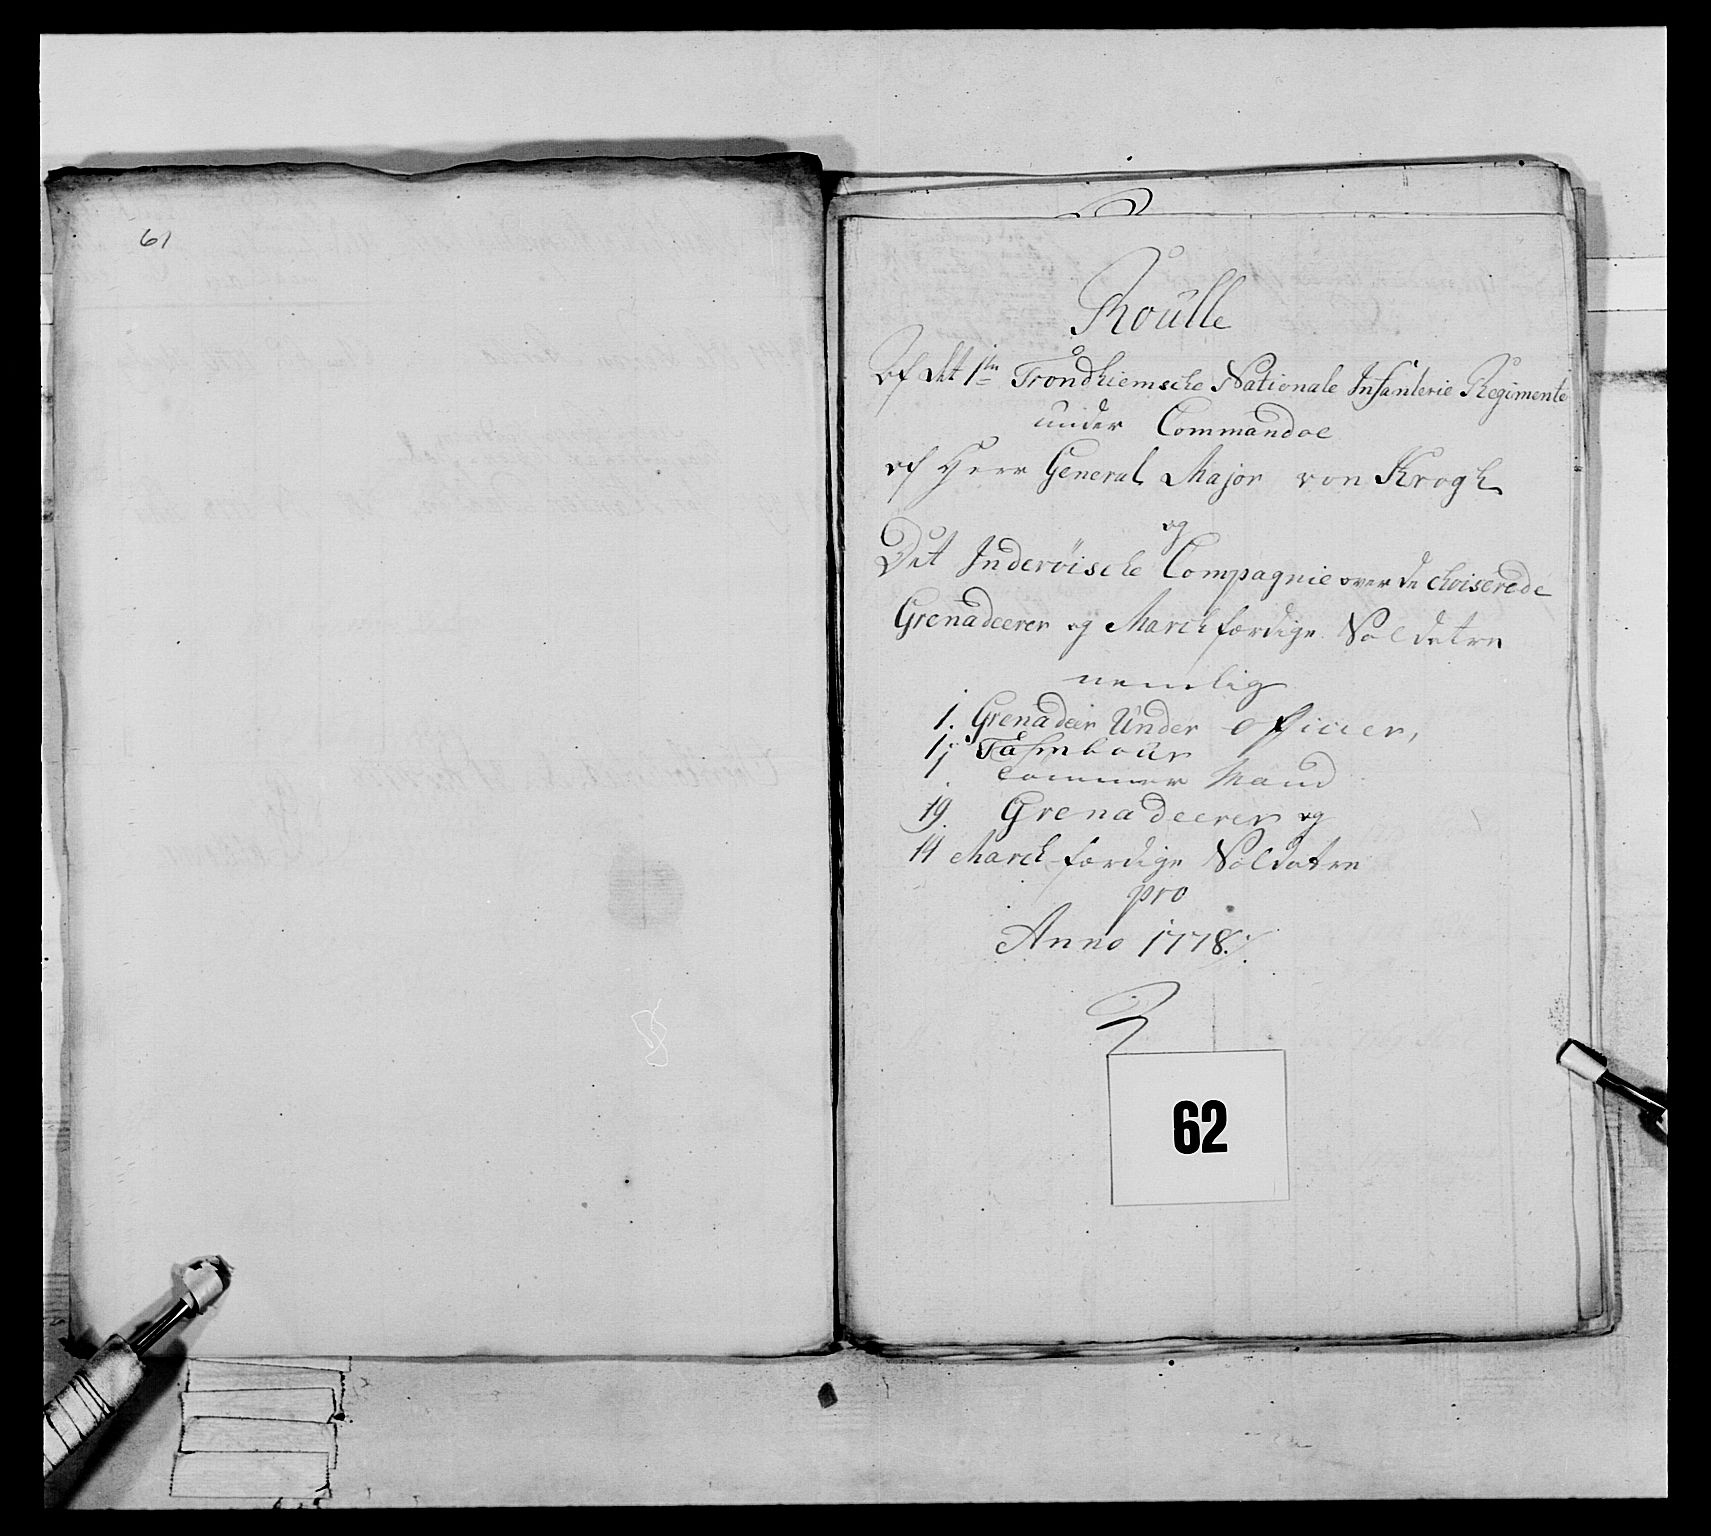 61
Roulle
Af det 1ste Trondhiemsche Nationale Infanterie Regimente
under Commandoe
af Herr General Major von Krogh
og
Det Inderöische Compagnie over de choiserede
Grenadeerer og March færdige Soldatere
nemlig
1. Grenadeer Under Officier,
1. Tambour
1. Tømmer Mand
19. Grenadeerer og
14 March færdige Soldatere
pro
Anno 1778
62